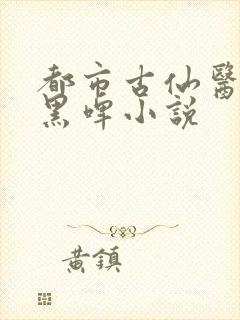 都市古仙醫
黑啤小說
黃鎮